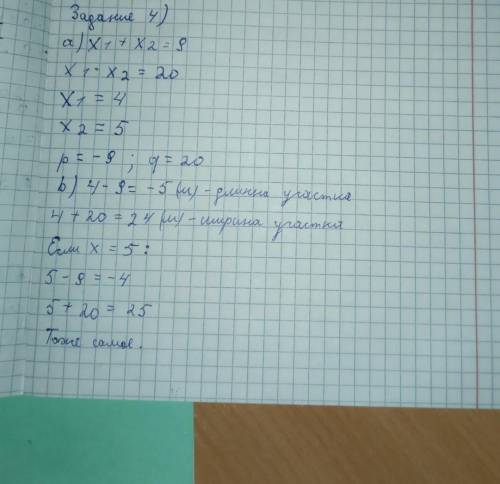 Задание 4)
a) x1 + x2 = 9
x1 · x2 = 20
x1 = 4
x2 = 5
p = -9 ; q = 20
b) 4 - 9 = -5 (м) - длинна участка
4 + 20 = 24 (м) - ширина участка
Если x = 5 :
5 - 9 = -4
5 + 20 = 25
Тоже самое.